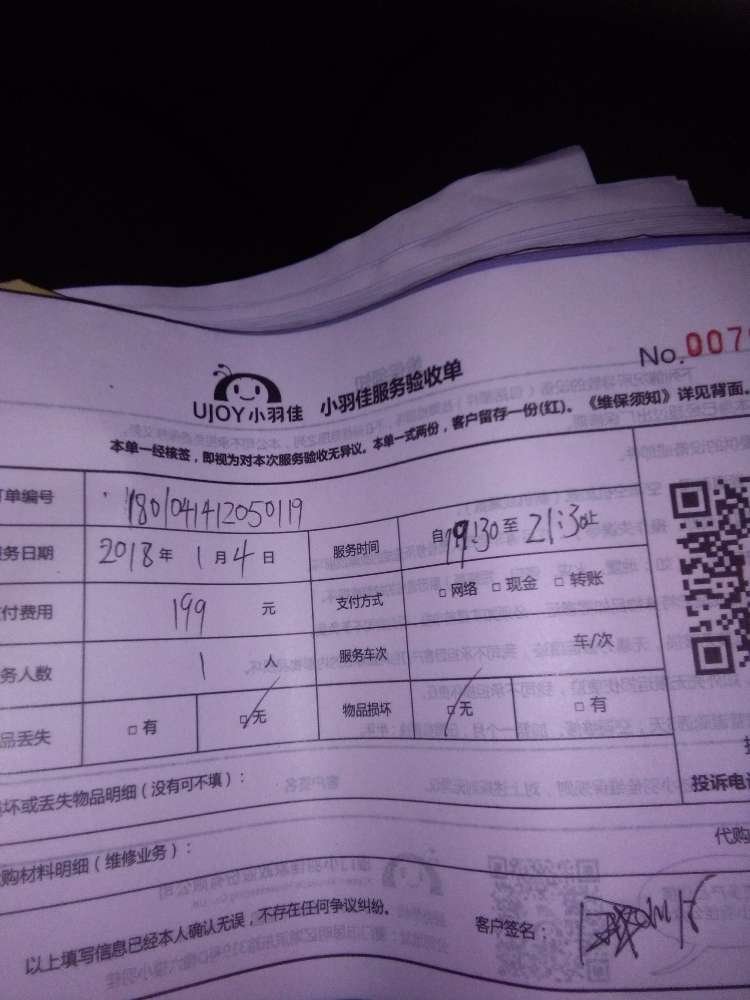 No.007
UJOY小羽佳 小羽佳服务验收单
本单一经核签，即视为对本次服务验收无异议。本单一式两份，客户留存一份(红)。《维保须知》详见背面。
订单编号 1801041412050119
服务日期 2018年1月4日 服务时间 自19:30至21:30止
付费用 199元 支付方式 □网络 □现金 □转账
务人数 1人 服务车次 车/次
品丢失 □有 □无 物品损坏 □无 □有
损坏或丢失物品明细（没有可不填）：
投诉电话
代购材料明细（维修业务）：
代购
以上填写信息已经本人确认无误，不存在任何争议纠纷。 客户签名：